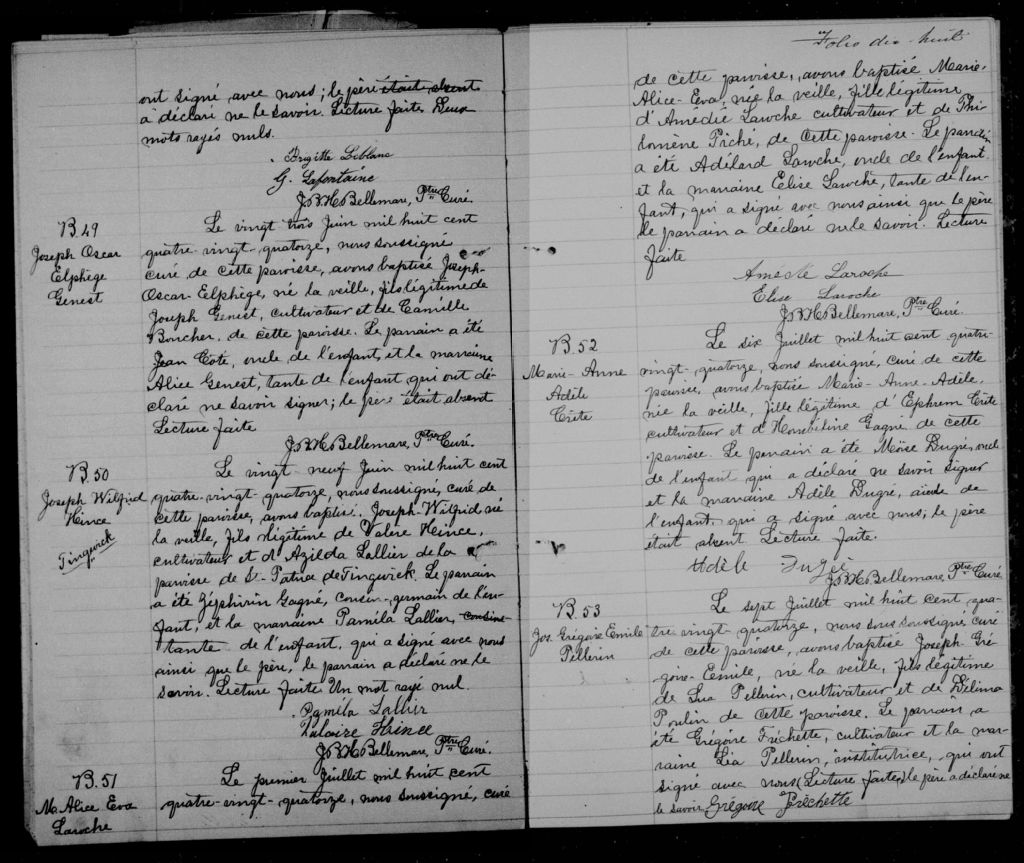 ont signé avec nous; le père était absent
a déclaré ne le savoir. Lecture faite Deux
mots rayés nuls.
Brigitte Leblanc
G. Lafontaine
J.B.H. Bellemare, Ptre Curé.
B.49
Joseph Oscar
Elphège
Genest
Le vingt trois Juin mil huit cent
quatre-vingt-quatorze, nous soussigné
curé de cette paroisse, avons baptisé Joseph-
Oscar-Elphège, né la veille, fils légitime de
Joseph Genest, cultivateur et de Camille
Boucher de cette paroisse. Le parrain a été
Jean Coté, oncle de l'enfant, et la marraine
Alice Genest, tante de l'enfant qui ont dé-
claré ne savoir signer; le père était absent
Lecture faite
J.B.H. Bellemare, Ptre Curé.
B.50
Joseph Wilfrid
Hince
Tingwick
Le vingt-neuf Juin mil huit cent
quatre-vingt-quatorze, nous soussigné, curé de
cette paroisse, avons baptisé Joseph-Wilfrid né
la veille, fils légitime de Valère Hince,
cultivateur et d'Azilda Lallier de la
paroisse de St-Patrice de Tingwick. Le parrain
a été Zéphirin Gagné, cousin-germain de l'en-
fant, et la marraine Pamila Lallier, cousine
tante de l'enfant, qui a signé avec nous
ainsi que le père, le parrain a déclaré ne le
savoir. Lecture faite Un mot rayé nul.
Pamila Lallier
Hince
J.B.H. Bellemare, Ptre Curé.
B.51
M. Alice Eva
Laroche
Le premier Juillet mil huit cent
quatre-vingt-quatorze, nous soussigné, curé
Folio dix-huit
de cette paroisse, avons baptisé Marie-
Alice-Eva, née la veille, fille légitime
d'Amédée Laroche cultivateur et de Phi-
lomène Piché, de cette paroisse. Le parrain
a été Adélard Laroche, oncle de l'enfant
et la marraine Elise Laroche, tante de l'en-
fant, qui a signé avec nous ainsi que le père
le parrain a déclaré ne le savoir. Lecture
faite
Laroche
Elise Laroche
J.B.H. Bellemare, Ptre Curé.
B.52
Marie-Anne
Adèle
Crête
Le six Juillet mil huit cent quatre-
vingt-quatorze, nous soussigné, curé de cette
paroisse, avons baptisé Marie-Anne-Adèle,
née la veille, fille légitime d'Ephrem Crête
cultivateur et d'Hombéline Gagné de cette
paroisse. Le parrain a été Moïse Dugré, oncle
de l'enfant qui a déclaré ne savoir signer
et la marraine Adèle Dugré, aieule de
l'enfant, qui a signé avec nous, le père
était absent Lecture faite.
Adèle
J.B.H. Bellemare, Ptre Curé
B.53
Jos. Grégoire Emile
Pellerin
Le sept Juillet mil huit cent qua-
tre-vingt-quatorze, nous sous soussigné, curé
de cette paroisse, avons baptisé Joseph Gré-
goire-Emile, né la veille, fils légitime
de Luc Pellerin, cultivateur et de Délima
Poulin de cette paroisse. Le parrain a
été Grégoire Fréchette, cultivateur et la mar-
raine Léa Pellerin, institutrice, qui ont
signé avec nous (Lecture faite) le père a déclaré ne
le savoir Grégoire Fréchette